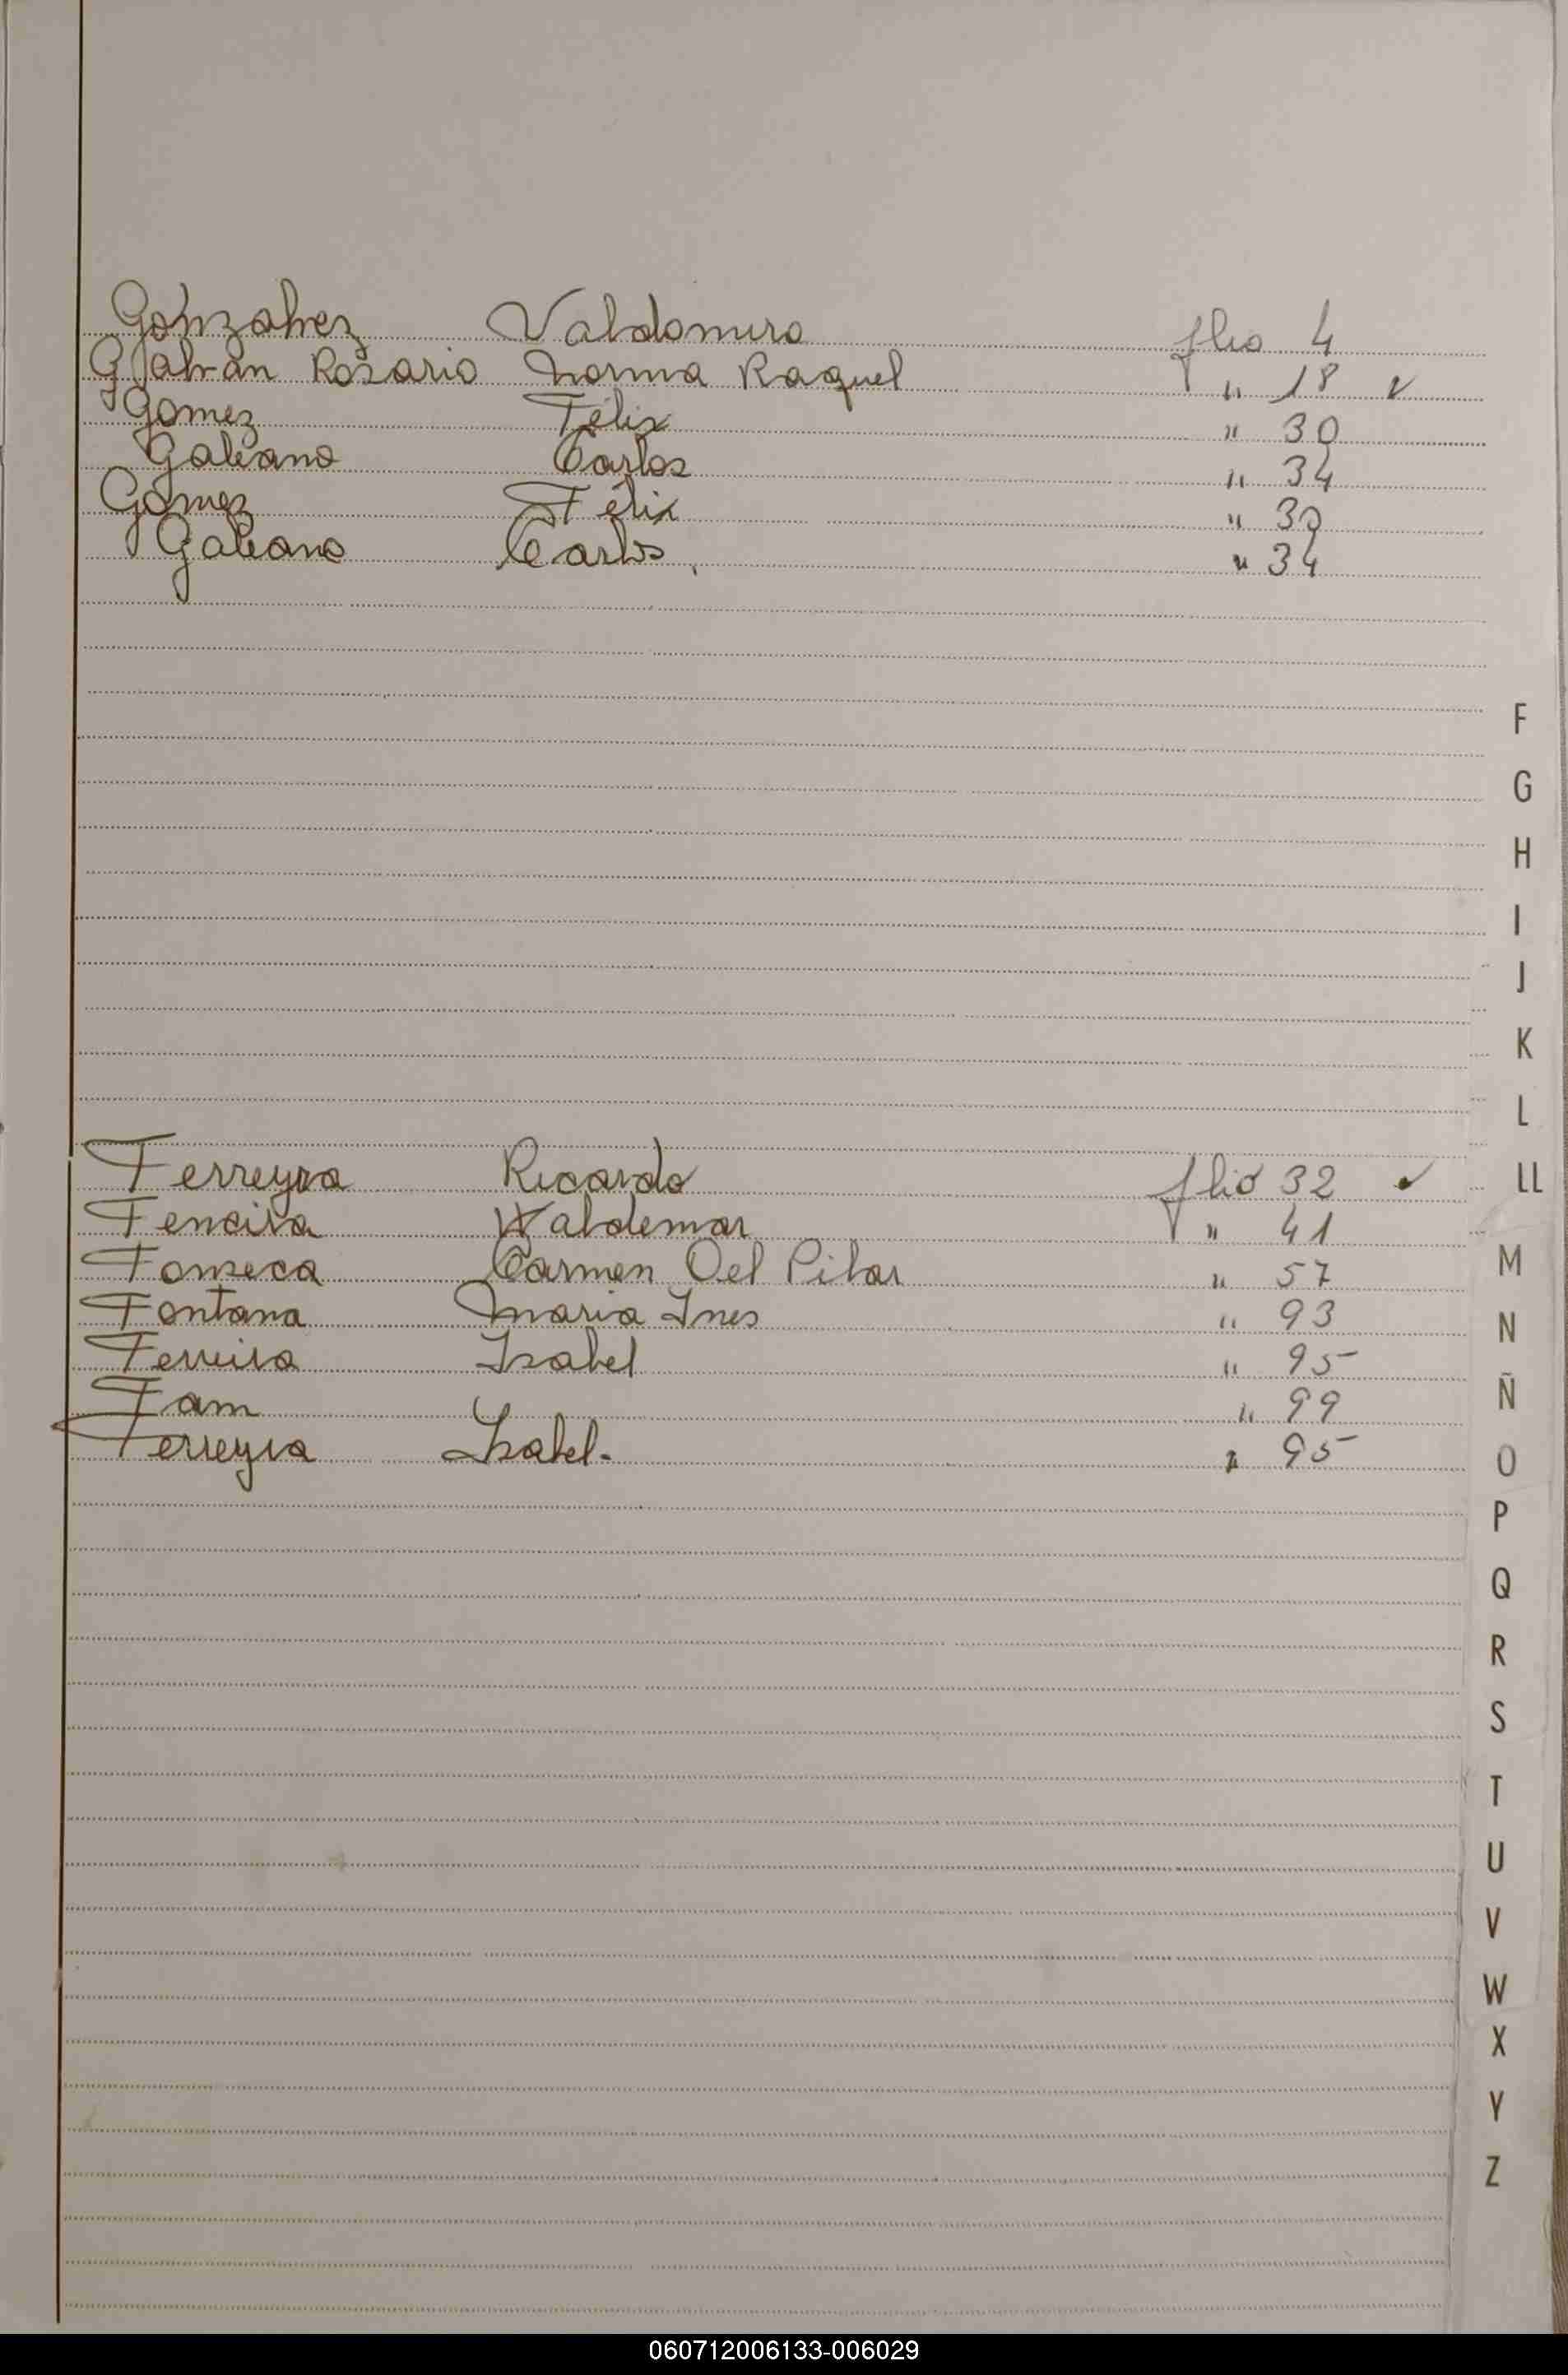 Gonzalvez Valdomiro flio 4
Galvan Rosario Norma Raquel " 18 ✓
Gomez Félix " 30
Galeano Carlos " 34
Gomez Félix " 30
Galeano Carlos. " 34
F
G
H
I
J
K
L
Ferreyra Ricardo flio 32 ✓
LL
Ferreira Waldemar " 41
Fonseca Carmen Del Pilar " 57
M
Fontana Maria Ines " 93
N
Ferreira Isabel " 95
Ñ
Fam " 99
Ferreyra Isabel. " 95
O
P
Q
R
S
T
U
V
W
X
Y
Z
060712006133-006029